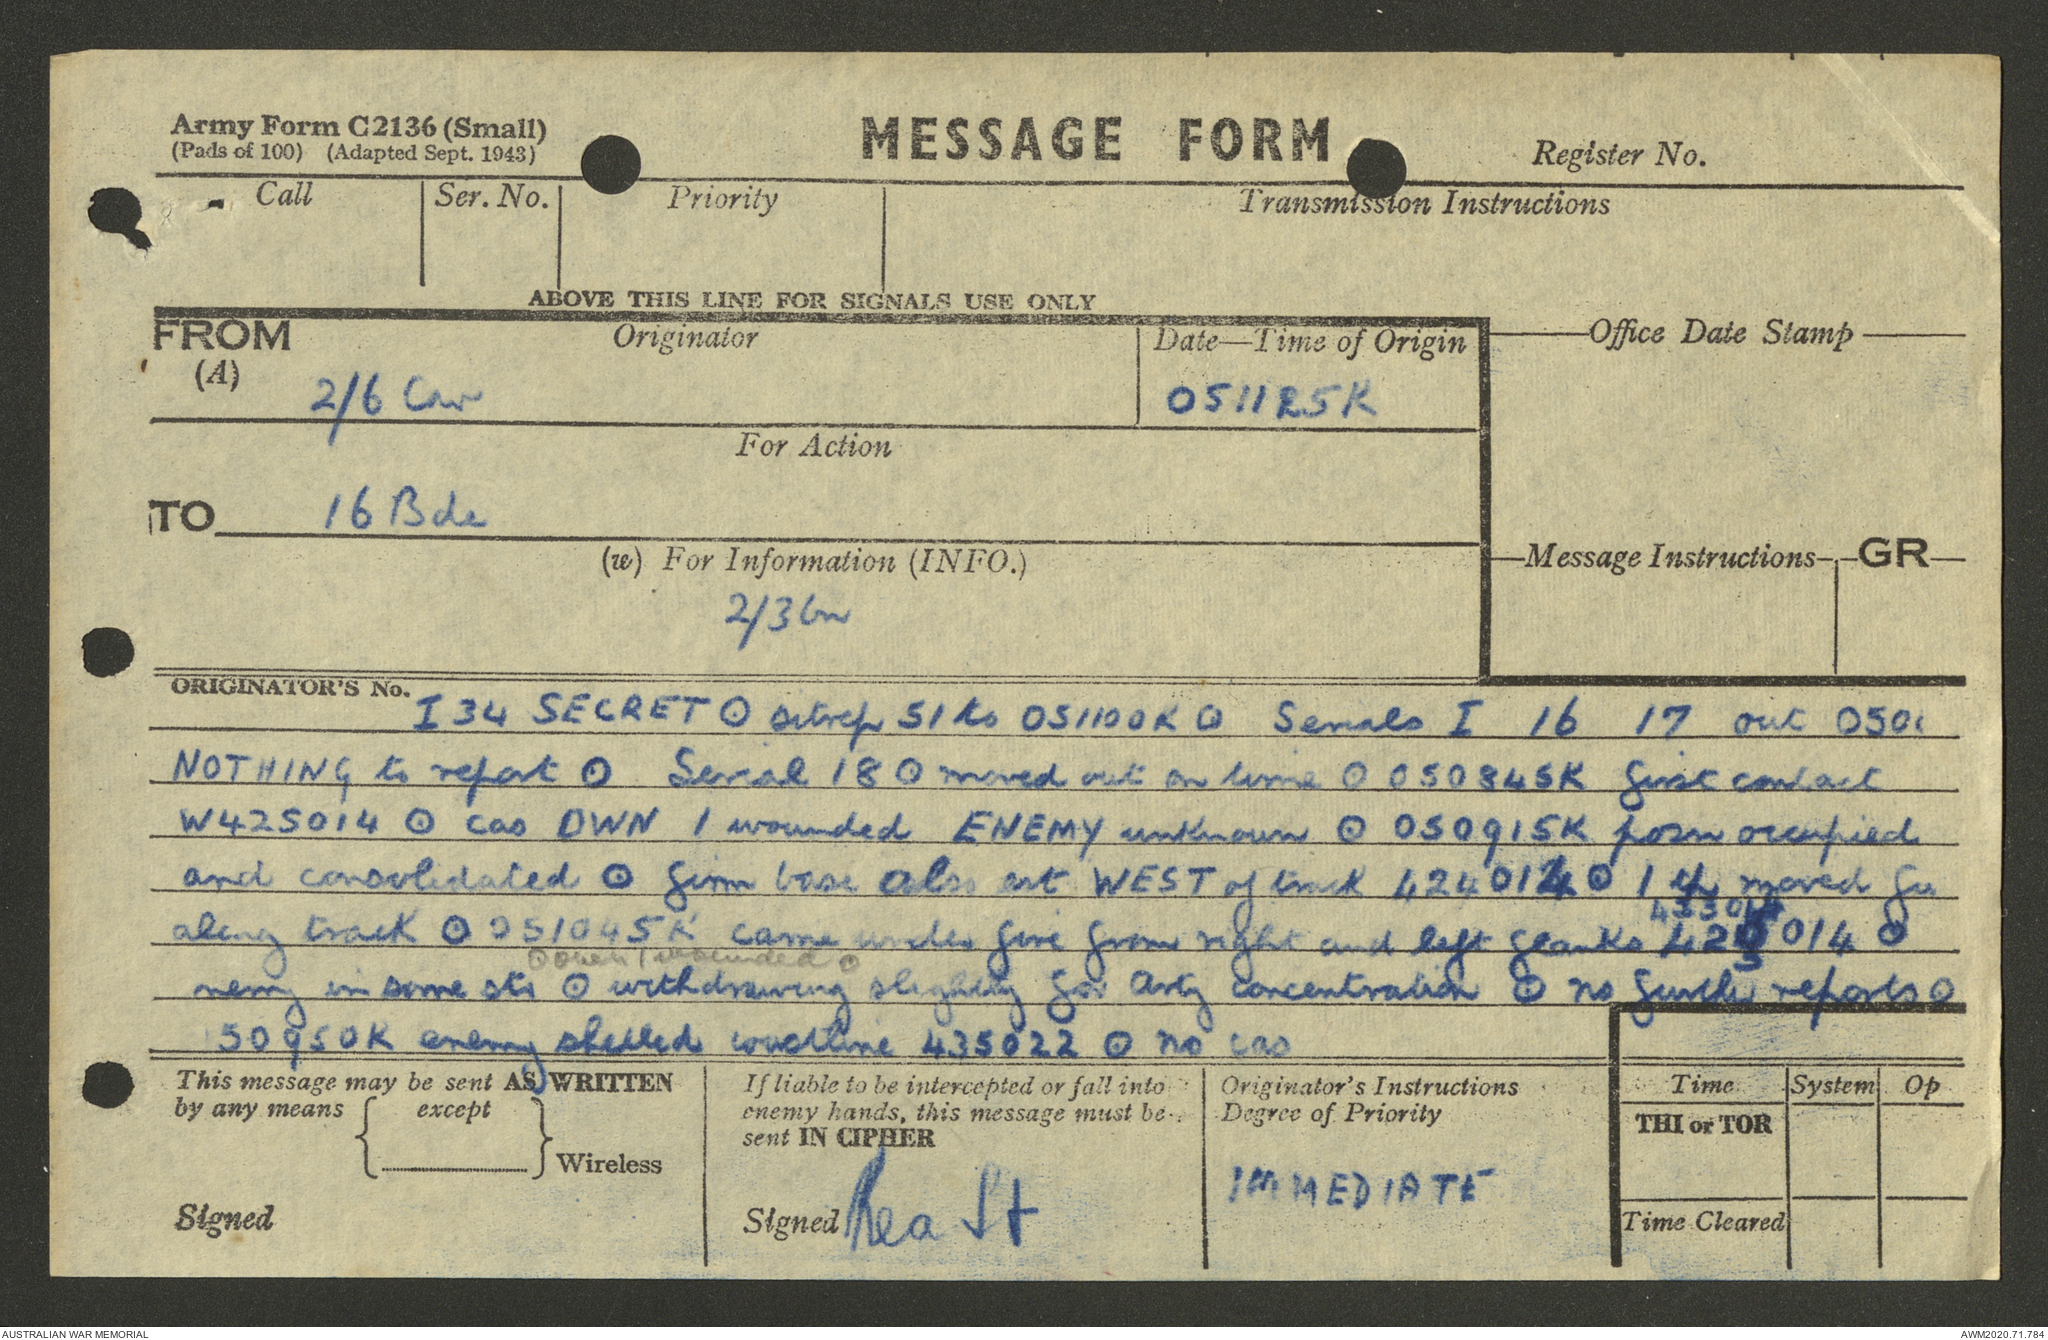 Army Form C2136 (Small)
(Pads of 100) (Adapted Sept. 1943)
MESSAGE FORM
Register No.
Call Ser. No. Priority Transmission Instructions
ABOVE THIS LINE FOR SIGNALS USE ONLY
FROM Originator Date—Time of Origin Office Date Stamp
(A)
2/6 Cav 051125K
For Action
TO 16 Bde
(w) For Information (INFO.) Message Instructions GR
2/3 bn
ORIGINATOR'S No.
I 34 SECRET ⊙ sitrep 51 to 051100K ⊙ Serials I 16 17 out
NOTHING to report ⊙ Serial 18 ⊙ moved out on time ⊙ 050845K first contact
W425014 ⊙ cas OWN 1 wounded ENEMY unknown ⊙ 050915K posn occupied
and consolidated ⊙ firm base also est WEST of track ⊙ 1 moved
along track ⊙ 051045K came under fire from right and left flanks 014 ⊙
⊙ own 1 wounded ⊙
nemy in some sts ⊙ withdrawing slightly for Arty concentration ⊙ no further reports ⊙
50950K enemy shelled 435022 ⊙ no cas
This message may be sent AS WRITTEN
by any means except
Wireless
Signed
If liable to be intercepted or fall into
enemy hands, this message must be
sent IN CIPHER
Signed Rea Lt
Originator's Instructions
Degree of Priority
IMMEDIATE
Time System Op
THI or TOR
Time Cleared
AUSTRALIAN WAR MEMORIAL
AWM2020.71.784